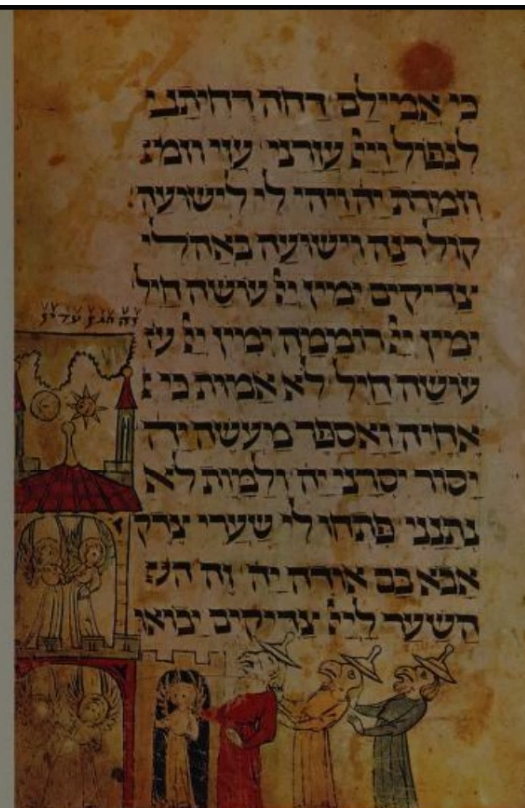 כִּי אֲמִילַם דַּחֹה דְחִיתַנִי
לִנְפּוֹל וַייָ עֲזָרָנִי עָזִי
וְזִמְרָת יָהּ וַיְהִי לִי לִישׁוּעָה
קוֹל רִנָּה וִישׁוּעָה בְּאָהֳלֵי
צַדִּיקִים יְמִין יְיָ עוֹשָׂה חָיִל
יְמִין יְיָ רוֹמֵמָה יְמִין יְיָ
עוֹשָׂה חָיִל לֹא אָמוּת כִּי
אֶחְיֶה וַאֲסַפֵּר מַעֲשֵׂה יָהּ
יַסּוֹר יִסְּרַנִי יָּהּ וְלַמָּוֶת לֹא
נְתָנָנִי פִּתְחוּ לִי שַׁעֲרֵי צֶדֶק
אָבֹא בָם אוֹדֶה יָהּ זֶה
הַשַּׁעַר לַייָ צַדִּיקִים יָבוֹאוּ